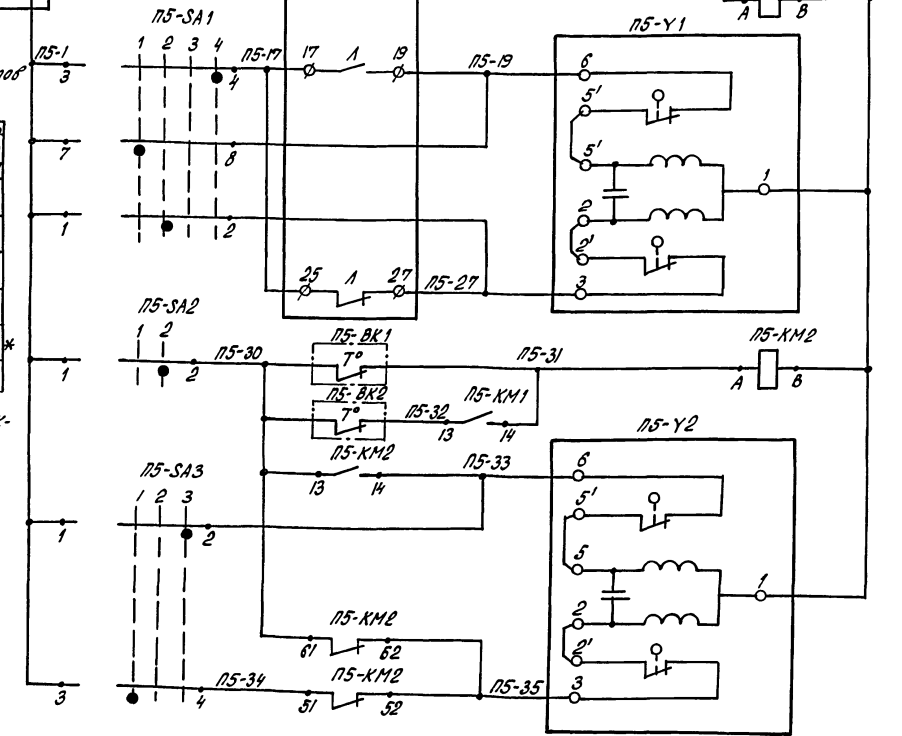 A B
П5-SA1
П5-Y1
1 2 3 4
П5-1
3
4
П5-17
17 Л 19
П5-19
6
5'
7
8
5'
1
1
2
2
2'
25 Л 27
П5-27
3
П5-SA2
1 2
*
1
2
П5-30
П5-ВК1
Т°
П5-31
П5-КМ2
А В
П5-ВК2
Т°
П5-32
13
П5-КМ1
14
П5-Y2
П5-КМ2
13 14
П5-33
6
5'
П5-SA3
1 2 3
1
2
5
1
2
2'
П5-КМ2
61 62
П5-КМ2
3
4
П5-34
51 52
П5-35
3